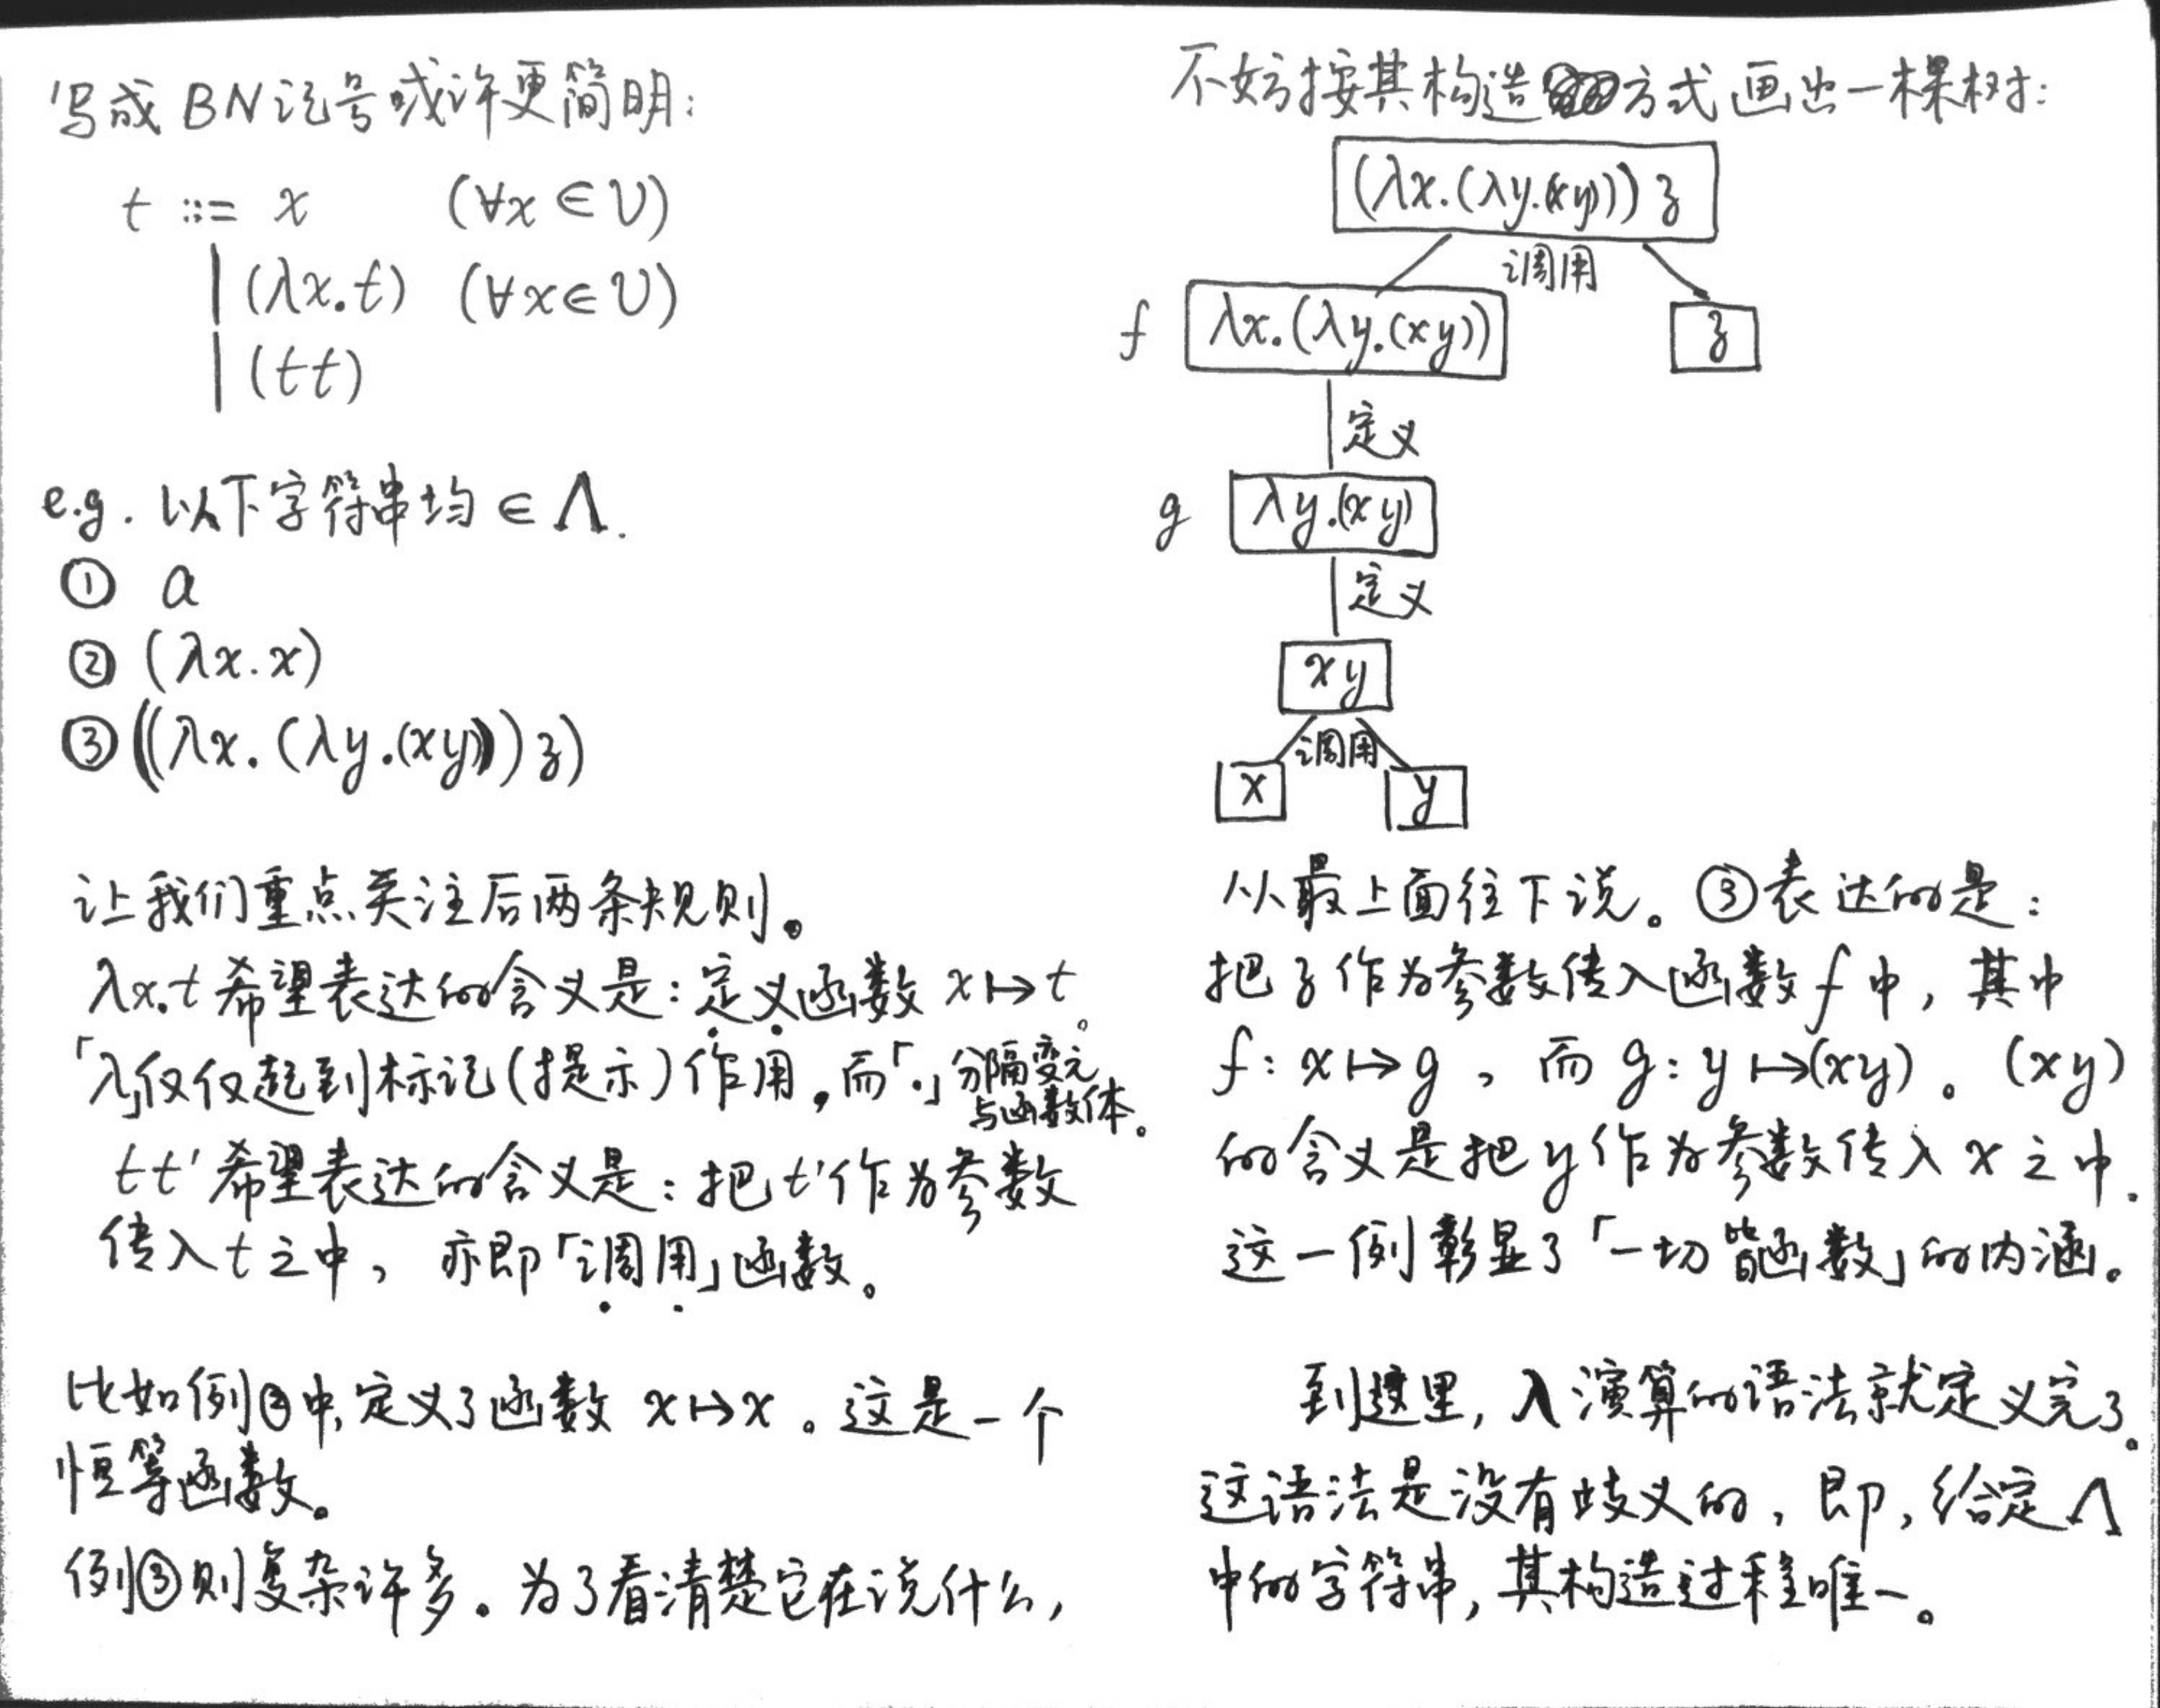 写成 BN 记号或许更简明:
t ::= x (∀x ∈ V)
| (λx.t) (∀x ∈ V)
| (tt)
e.g. 以下字符串均 ∈ Λ.
① a
② (λx.x)
③ ((λx.(λy.(xy))) z)
让我们重点关注后两条规则。
λx.t 希望表达的含义是: 定义函数 x ↦ t。
「λ」仅仅起到标记(提示)作用,而「.」分隔变元
与函数体。
tt' 希望表达的含义是: 把 t' 作为参数
传入 t 之中, 亦即「调用」函数。
比如例②中,定义了函数 x ↦ x。这是一个
恒等函数。
例③则复杂许多。为了看清楚它在说什么,
不妨按其构造方式画出一棵树:
(λx.(λy.(xy))) z
调用
f λx.(λy.(xy)) z
定义
g λy.(xy)
定义
xy
调用
x y
从最上面往下说。③表达的是:
把 z 作为参数传入函数 f 中, 其中
f: x ↦ g, 而 g: y ↦ (xy)。(xy)
的含义是把 y 作为参数传入 x 之中.
这一例彰显了「一切皆函数」的内涵。
到这里, λ 演算的语法就定义完了。
这语法是没有歧义的, 即, 给定 Λ
中的字符串, 其构造过程唯一。